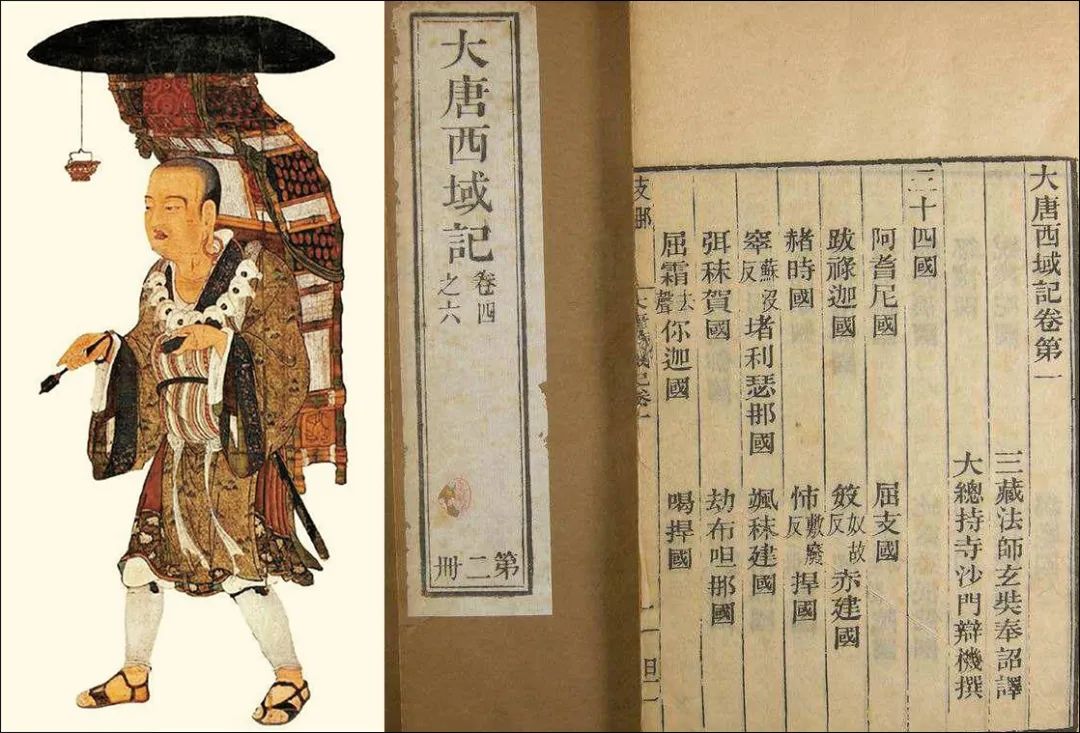 大唐西域記
卷四
之六
第二冊
大唐西域記卷第一
三藏法師玄奘奉詔譯
大總持寺沙門辯機撰
三十四國
阿耆尼國 屈支國
跋祿迦國 笯奴故反赤建國
赭時國 㤄敷廢反捍國
窣蘇沒反堵利瑟那國 颯秣建國
弭秣賀國 劫布呾那國
屈霜去聲你迦國 喝捍國